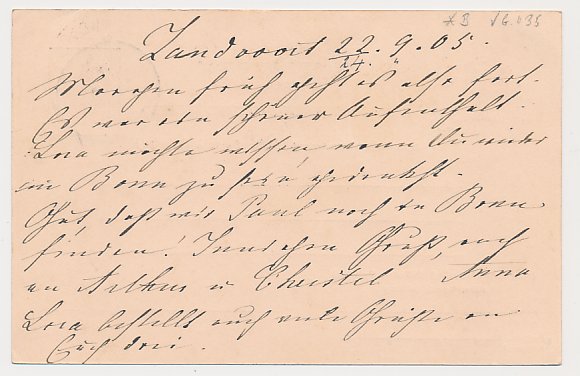 Zandvoort 22. 9. 05.
24.
Morgen früh geht es also fort.
Es war ein schöner Aufenthalt.
Lora möchte wissen wann Du wieder
in Bonn zu sein gedenkst.
Gut, daß wir Paul noch in Bonn
finden! Innigen Gruß, auch
an Arthur u Christel Anna
Lora bestellt auch viele Grüße an
Euch drei.